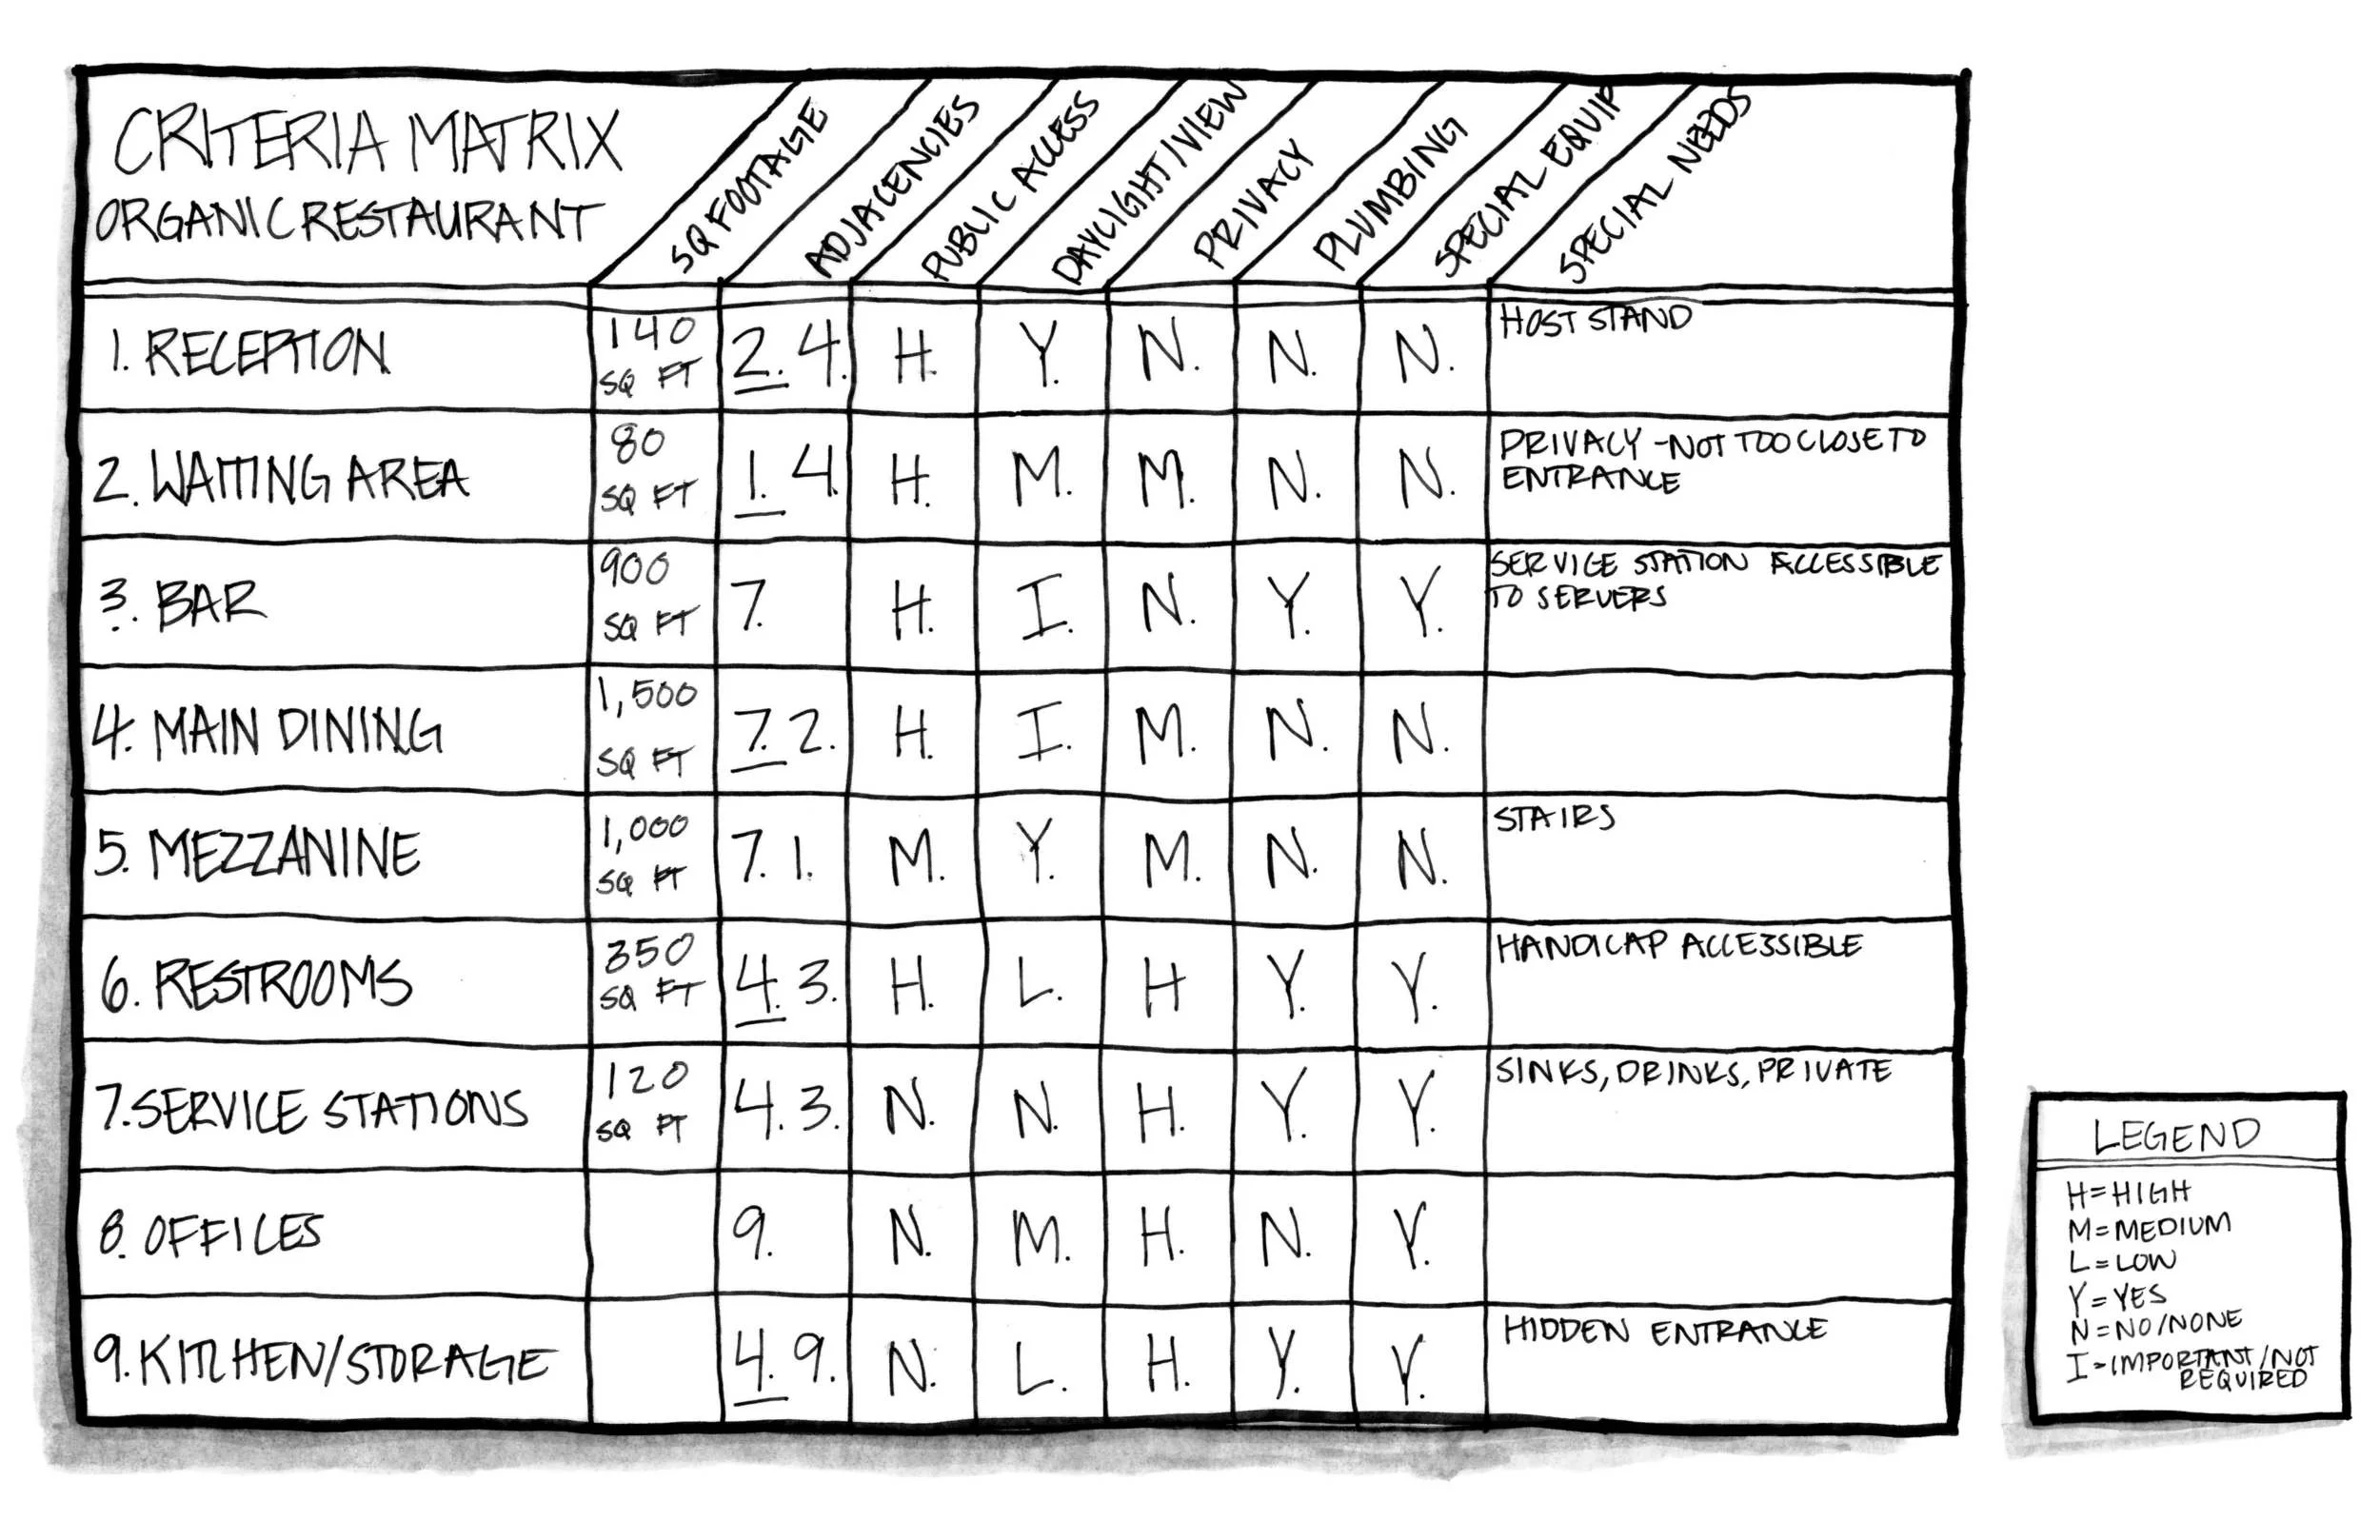 CRITERIA MATRIX
ORGANIC RESTAURANT
SQ FOOTAGE
ADJACENCIES
PUBLIC ACCESS
DAYLIGHT/VIEW
PRIVACY
PLUMBING
SPECIAL EQUIP
SPECIAL NEEDS
1. RECEPTION
140
SQ FT
2. 4.
H.
Y.
N.
N.
N.
HOST STAND
2. WAITING AREA
80
SQ FT
1. 4.
H.
M.
M.
N.
N.
PRIVACY - NOT TOO CLOSE TO
ENTRANCE
3. BAR
900
SQ FT
7.
H.
I.
N.
Y.
Y.
SERVICE STATION ACCESSIBLE
TO SERVERS
4. MAIN DINING
1,500
SQ FT
7. 2.
H.
I.
M.
N.
N.
5. MEZZANINE
1,000
SQ FT
7. 1.
M.
Y.
M.
N.
N.
STAIRS
6. RESTROOMS
350
SQ FT
4. 3.
H.
L.
H
Y.
Y.
HANDICAP ACCESSIBLE
7. SERVICE STATIONS
120
SQ FT
4. 3.
N.
N.
H.
Y.
Y.
SINKS, DRINKS, PRIVATE
8. OFFICES
9.
N.
M.
H.
N.
Y.
9. KITCHEN/STORAGE
4. 9.
N.
L.
H.
Y.
Y.
HIDDEN ENTRANCE
LEGEND
H=HIGH
M=MEDIUM
L=LOW
Y=YES
N=NO/NONE
I=IMPORTANT/NOT
REQUIRED